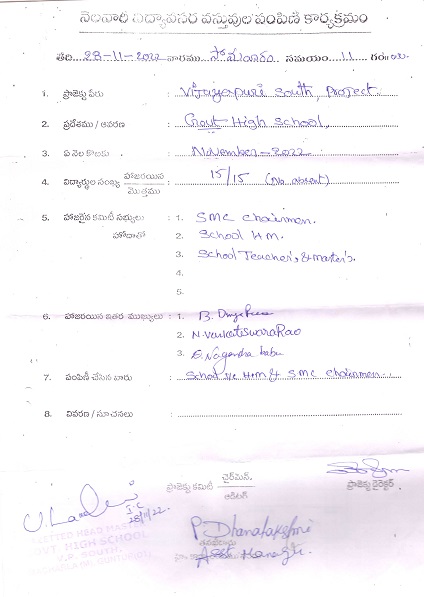 నెలవారి విద్యావసర వస్తువుల పంపిణి కార్యక్రమం
తేది. 28-11-2022 వారము సోమవారం సమయం. 11 గం॥లకు
1. ప్రాజెక్టు పేరు : Vijayapuri South, Project.
2. ప్రదేశము / ఆవరణ : Govt High School,
3. ఏ నెల కొరకు : November-2022
4. విద్యార్థుల సంఖ్య హాజరయిన / మొత్తము : 15/15 (No absent)
5. హాజరైన కమిటీ సభ్యులు : 1. SMC Chairmen.
హోదాతో 2. School H.M.
3. School Teacher's, & master's.
4.
5.
6. హాజరయిన ఇతర ముఖ్యులు : 1. B.
2. N. Venkateswara Rao
3. Nagendra babu
7. పంపిణీ చేసిన వారు : School H.M & SMC Chairmen.
8. వివరణ / సూచనలు :
ప్రాజెక్టు కమిటీ ఛైర్మెన్. / ఆడిటర్
ప్రాజెక్టు డైరెక్టర్
28/11/22.
P Dhanalakshmi
HIGH SCHOOL
V.P. SOUTH,